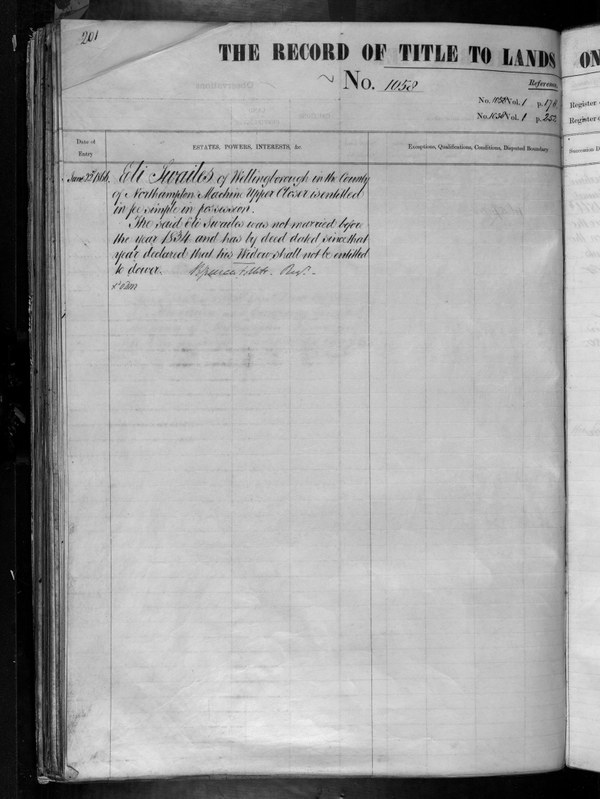 201
THE RECORD OF TITLE TO LANDS
ON
No. 1058
Reference.
No. 1058 Vol. 1 p. 178
Register
No. 1058 Vol. 1 p. 252
Register
Date of
Entry
ESTATES, POWERS, INTERESTS, &c.
Exceptions, Qualifications, Conditions, Disputed Boundary
Succession D
June 2d 1866. Eli Swailes of Wellingborough in the County
of Northampton Machine Upper Closer is entitled
in fee simple in possession.
The said Eli Swailes was not married before
the year 1834 and has by deed dated since that
year declared that his Widow shall not be entitled
to dower. Follett. Regr.